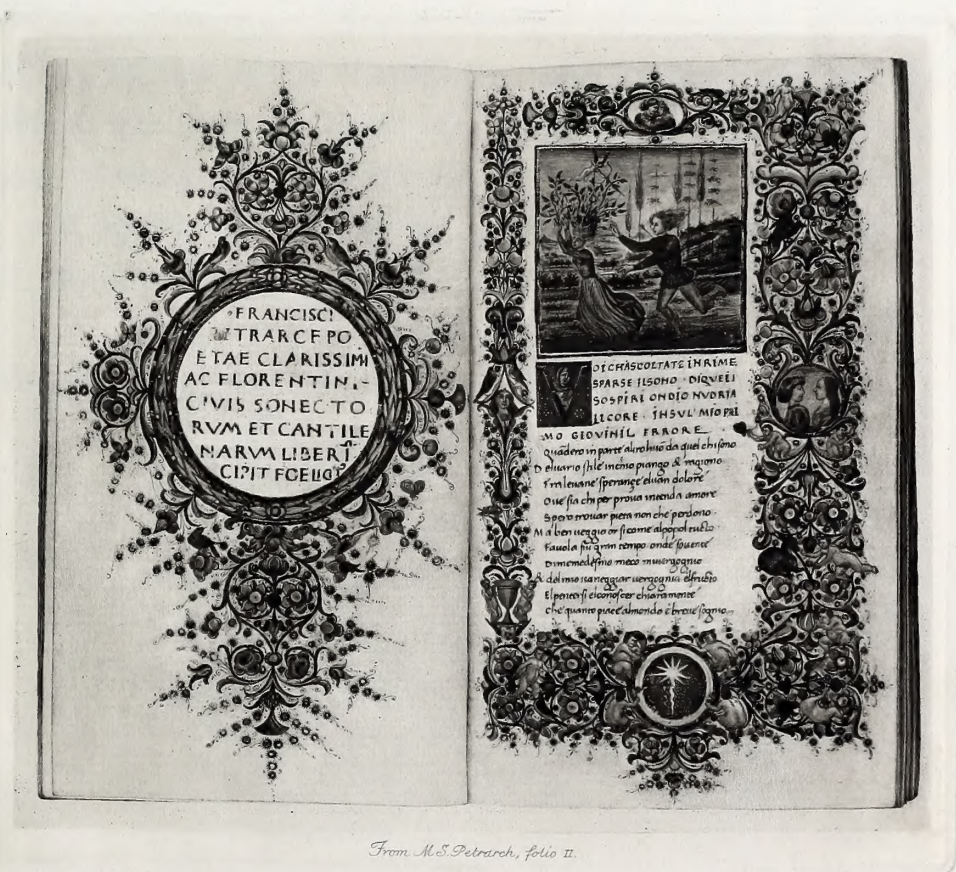 FRANCISCI
TRARCE PO
ETAE CLARISSIMI
AC FLORENTINI
CIVIS SONECTO
RVM ET CANTILE
NARVM LIBER
CIPIT FOELICT
VOI CHASCOLTATE IN RIME
SPARSE ILSONO · DIQVELI
SOSPIRI ONDIO NVDRIA
ILCORE · INSVL MIO PRI
MO GIOVINIL ERRORE
Quādero in parte altro huō da quel chi sono
Del uario stile inchio piango & ragiono
Fra le uane sperançe eluan dolore
Oue sia chi per proua intenda amore
Spero trouar pieta non che perdono
Ma ben ueggio or si come alpopol tucto
Fauola fui gran tempo onde souente
Dimemedesmo meco miuergogno
Et del mio uaneggiar uergogna elfructo
Elpentersi elconoscer chiaramente
Che quanto piace almondo e breue sogno
From M.S. Petrarch, folio II.